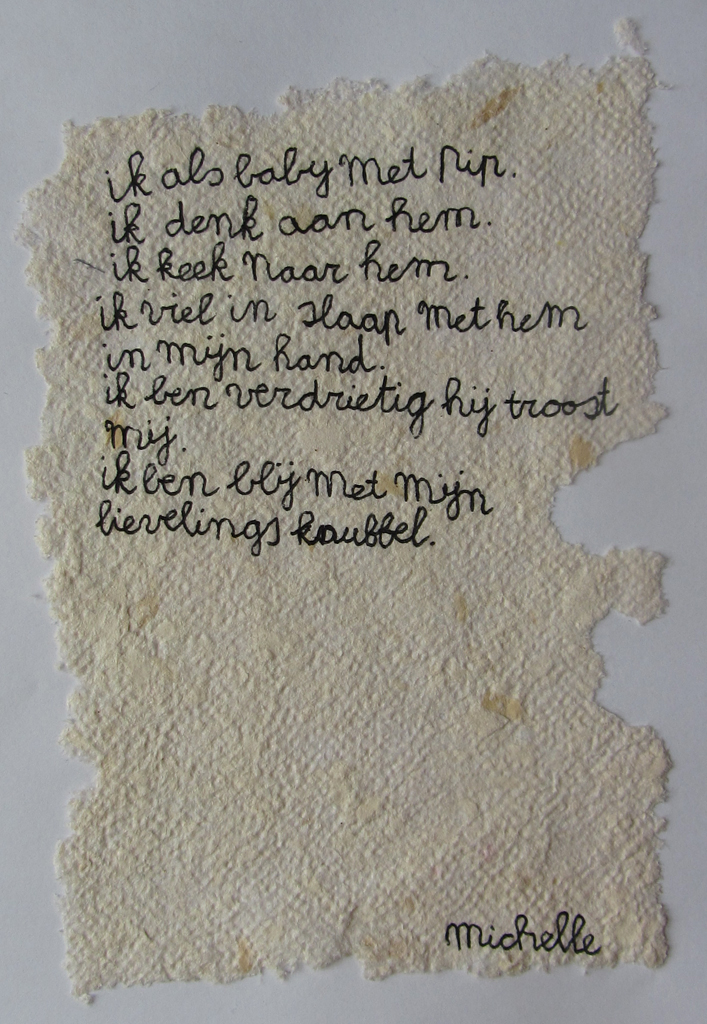 ik als baby met Pip.
ik denk aan hem.
ik keek naar hem.
ik viel in slaap met hem
in mijn hand.
ik ben verdrietig hij troost
mij.
ik ben blij met mijn
lievelings knubbel.
michelle